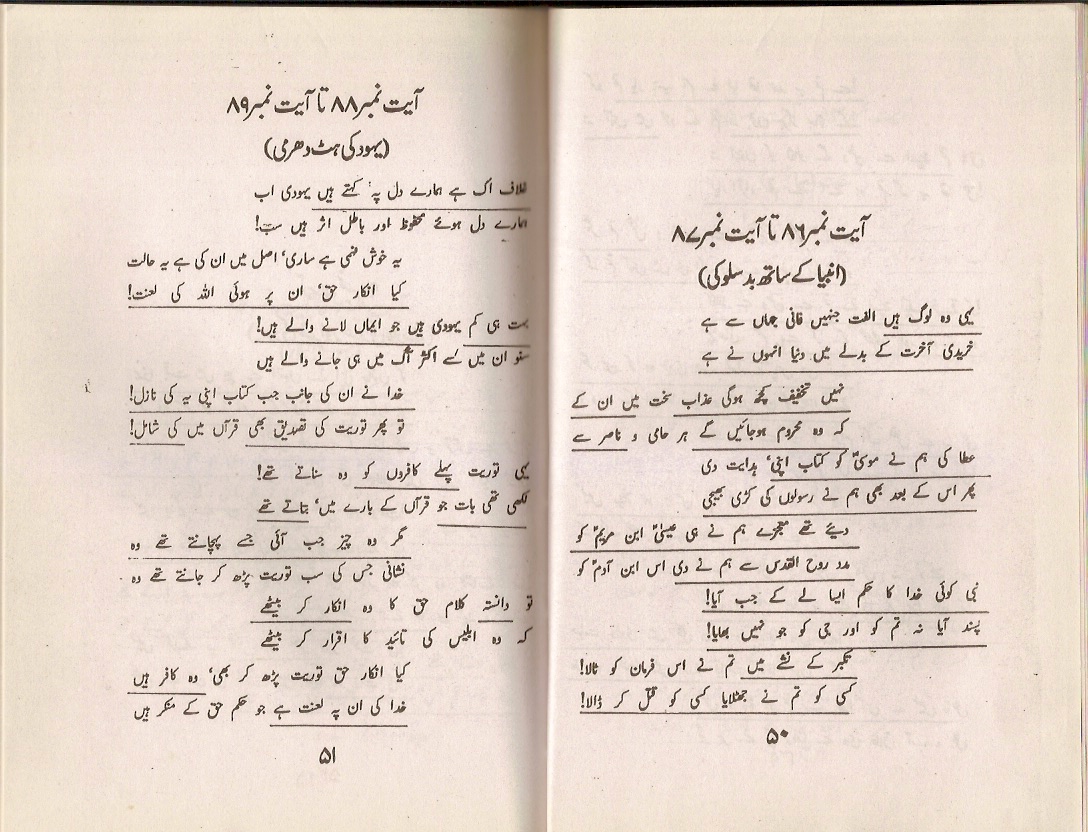 آیت نمبر ۸۶ تا آیت نمبر ۸۷
(انبیا کے ساتھ بد سلوکی)
یہی وہ لوگ ہیں الفت جنہیں فانی جہاں سے ہے
خریدی آخرت کے بدلے میں دنیا انہوں نے ہے
نہیں تخفیف کچھ ہوگی عذاب سخت میں ان کے
کہ وہ محروم ہوجائیں گے ہر حامی و ناصر سے
عطا کی ہم نے موسیٰؑ کو کتاب اپنی، ہدایت دی
پھر اس کے بعد بھی ہم نے رسولوں کی کڑی بھیجی
دیئے تھے معجزے ہم نے ہی عیسیٰؑ ابن مریمؑ کو
مدد روح القدس سے ہم نے دی اس ابن آدمؑ کو
نبی کوئی خدا کا حکم ایسا لے کے جب آیا!
پسند آیا نہ تم کو اور جی کو جو نہیں بھایا!
تکبر کے نشے میں تم نے اس فرمان کو ٹالا!
کسی کو تم نے جھٹلایا کسی کو قتل کر ڈالا!
۵۰
آیت نمبر ۸۸ تا آیت نمبر ۸۹
(یہود کی ہٹ دھرمی)
غلاف اک ہے ہمارے دل پہ، کہتے ہیں یہودی اب
ہمارے دل ہوئے محفوظ اور باطل اثر ہیں سب!
یہ خوش فہمی ہے ساری، اصل میں ان کی ہے یہ حالت
کیا انکار حق، ان پر ہوئی اللہ کی لعنت!
بہت ہی کم یہودی ہیں جو ایماں لانے والے ہیں!
سنو ان میں سے اکثر آگ میں ہی جانے والے ہیں
خدا نے ان کی جانب جب کتاب اپنی یہ کی نازل!
تو پھر توریت کی تصدیق بھی قرآں میں کی شامل!
یہی توریت پہلے کافروں کو وہ سناتے تھے!
لکھی تھی بات جو قرآں کے بارے میں، بتاتے تھے
مگر وہ چیز جب آئی جسے پہچانتے تھے وہ
نشانی جس کی سب توریت پڑھ کر جانتے تھے وہ
تو دانستہ کلام حق کا وہ انکار کر بیٹھے
کہ وہ ابلیس کی تائید کا اقرار کر بیٹھے
کیا انکار حق توریت پڑھ کر بھی، وہ کافر ہیں
خدا کی ان پہ لعنت ہے جو حکم حق کے منکر ہیں
۵۱